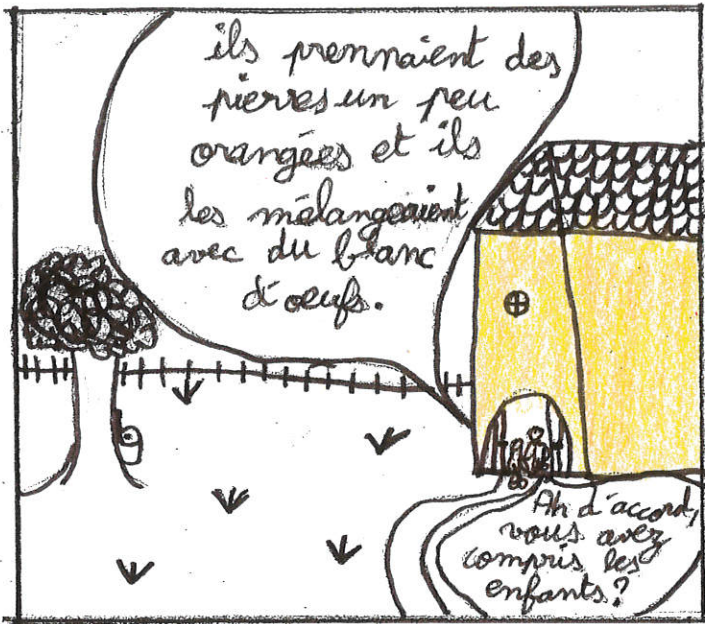 ils prennaient des
pierres un peu
orangées et ils
les mélangeaient
avec du blanc
d'oeufs.
Ah d'accord,
vous avez
compris les
enfants?